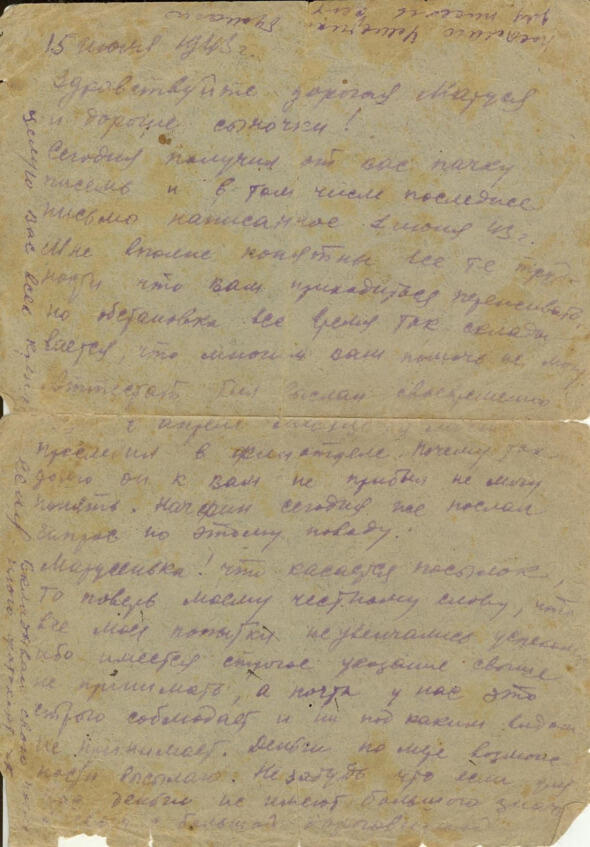 15 июня 1943 г.
Здравствуйте дорогая Маруся
и дорогие сыночки!
Сегодня получил от вас пачку
писемь и в том числе последнее
письмо написанное 2 июня 43 г.
Мне вполне понятны все те труд-
ности что вам приходиться переживать,
но обстановка все время так склады-
вается, что многим вам помочь не могу
Аттестат был выслан своевременно
в апреле
проследил в финотделе. Почему так
долго он к вам не прибыл не могу
понять. Начфин сегодня же послал
запрос по этому поводу.
Марусенька! что касается посылок,
то поверь моему честному слову, что
все мои попытки не увенчались успехом
ибо имеется строгое указание свыше
не принимать, а почта у нас это
строго соблюдает и ни под каким видом
не принимает. Деньги по мере возмож-
ности высылаю. Не забудь что если для
вас деньги не имеют большого значе
большой
целую вас всех крепко
вкладываю свою